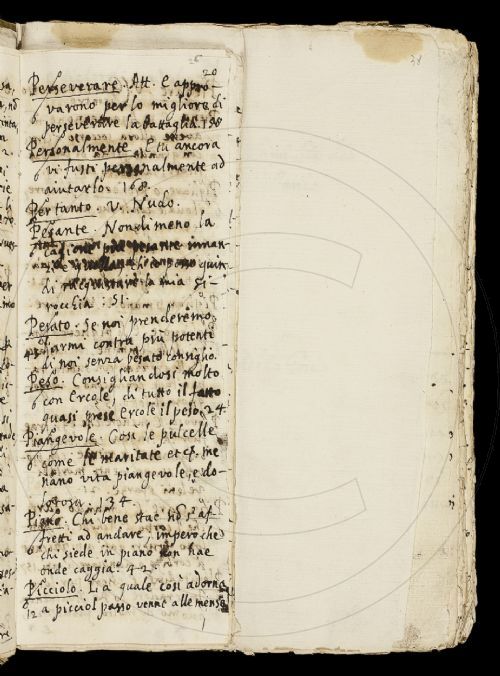 20
Perseverare. Att. E appro-
varono per lo migliore di
perseverare la battaglia. 158
Personalmente. E tu ancora
vi fusti personalmente ad
aiutarlo. 168.
Pertanto. V. Nudo.
Pesante. Nondimeno la
cagione più pesante innan-
di racquistare la mia si-
rocchia. 51.
Pesato. Se noi prenderemo
l'armi contra più potenti
di noi senza pesato consiglio.
Peso. Consigliandosi molto
con Ercole, di tutto il fatto
quasi prese Ercole il peso. 24
Piangevole. Così le pulcelle
come le maritate etc. me-
nano vita piangevole, e do-
lorosa. 134.
Piano. Chi bene stae nō s'af-
fretti ad andare, impero che
chi siede in piano non hae
onde caggia. 42.
Picciolo. La quale così adorna
12 a picciol passo venne alle mense